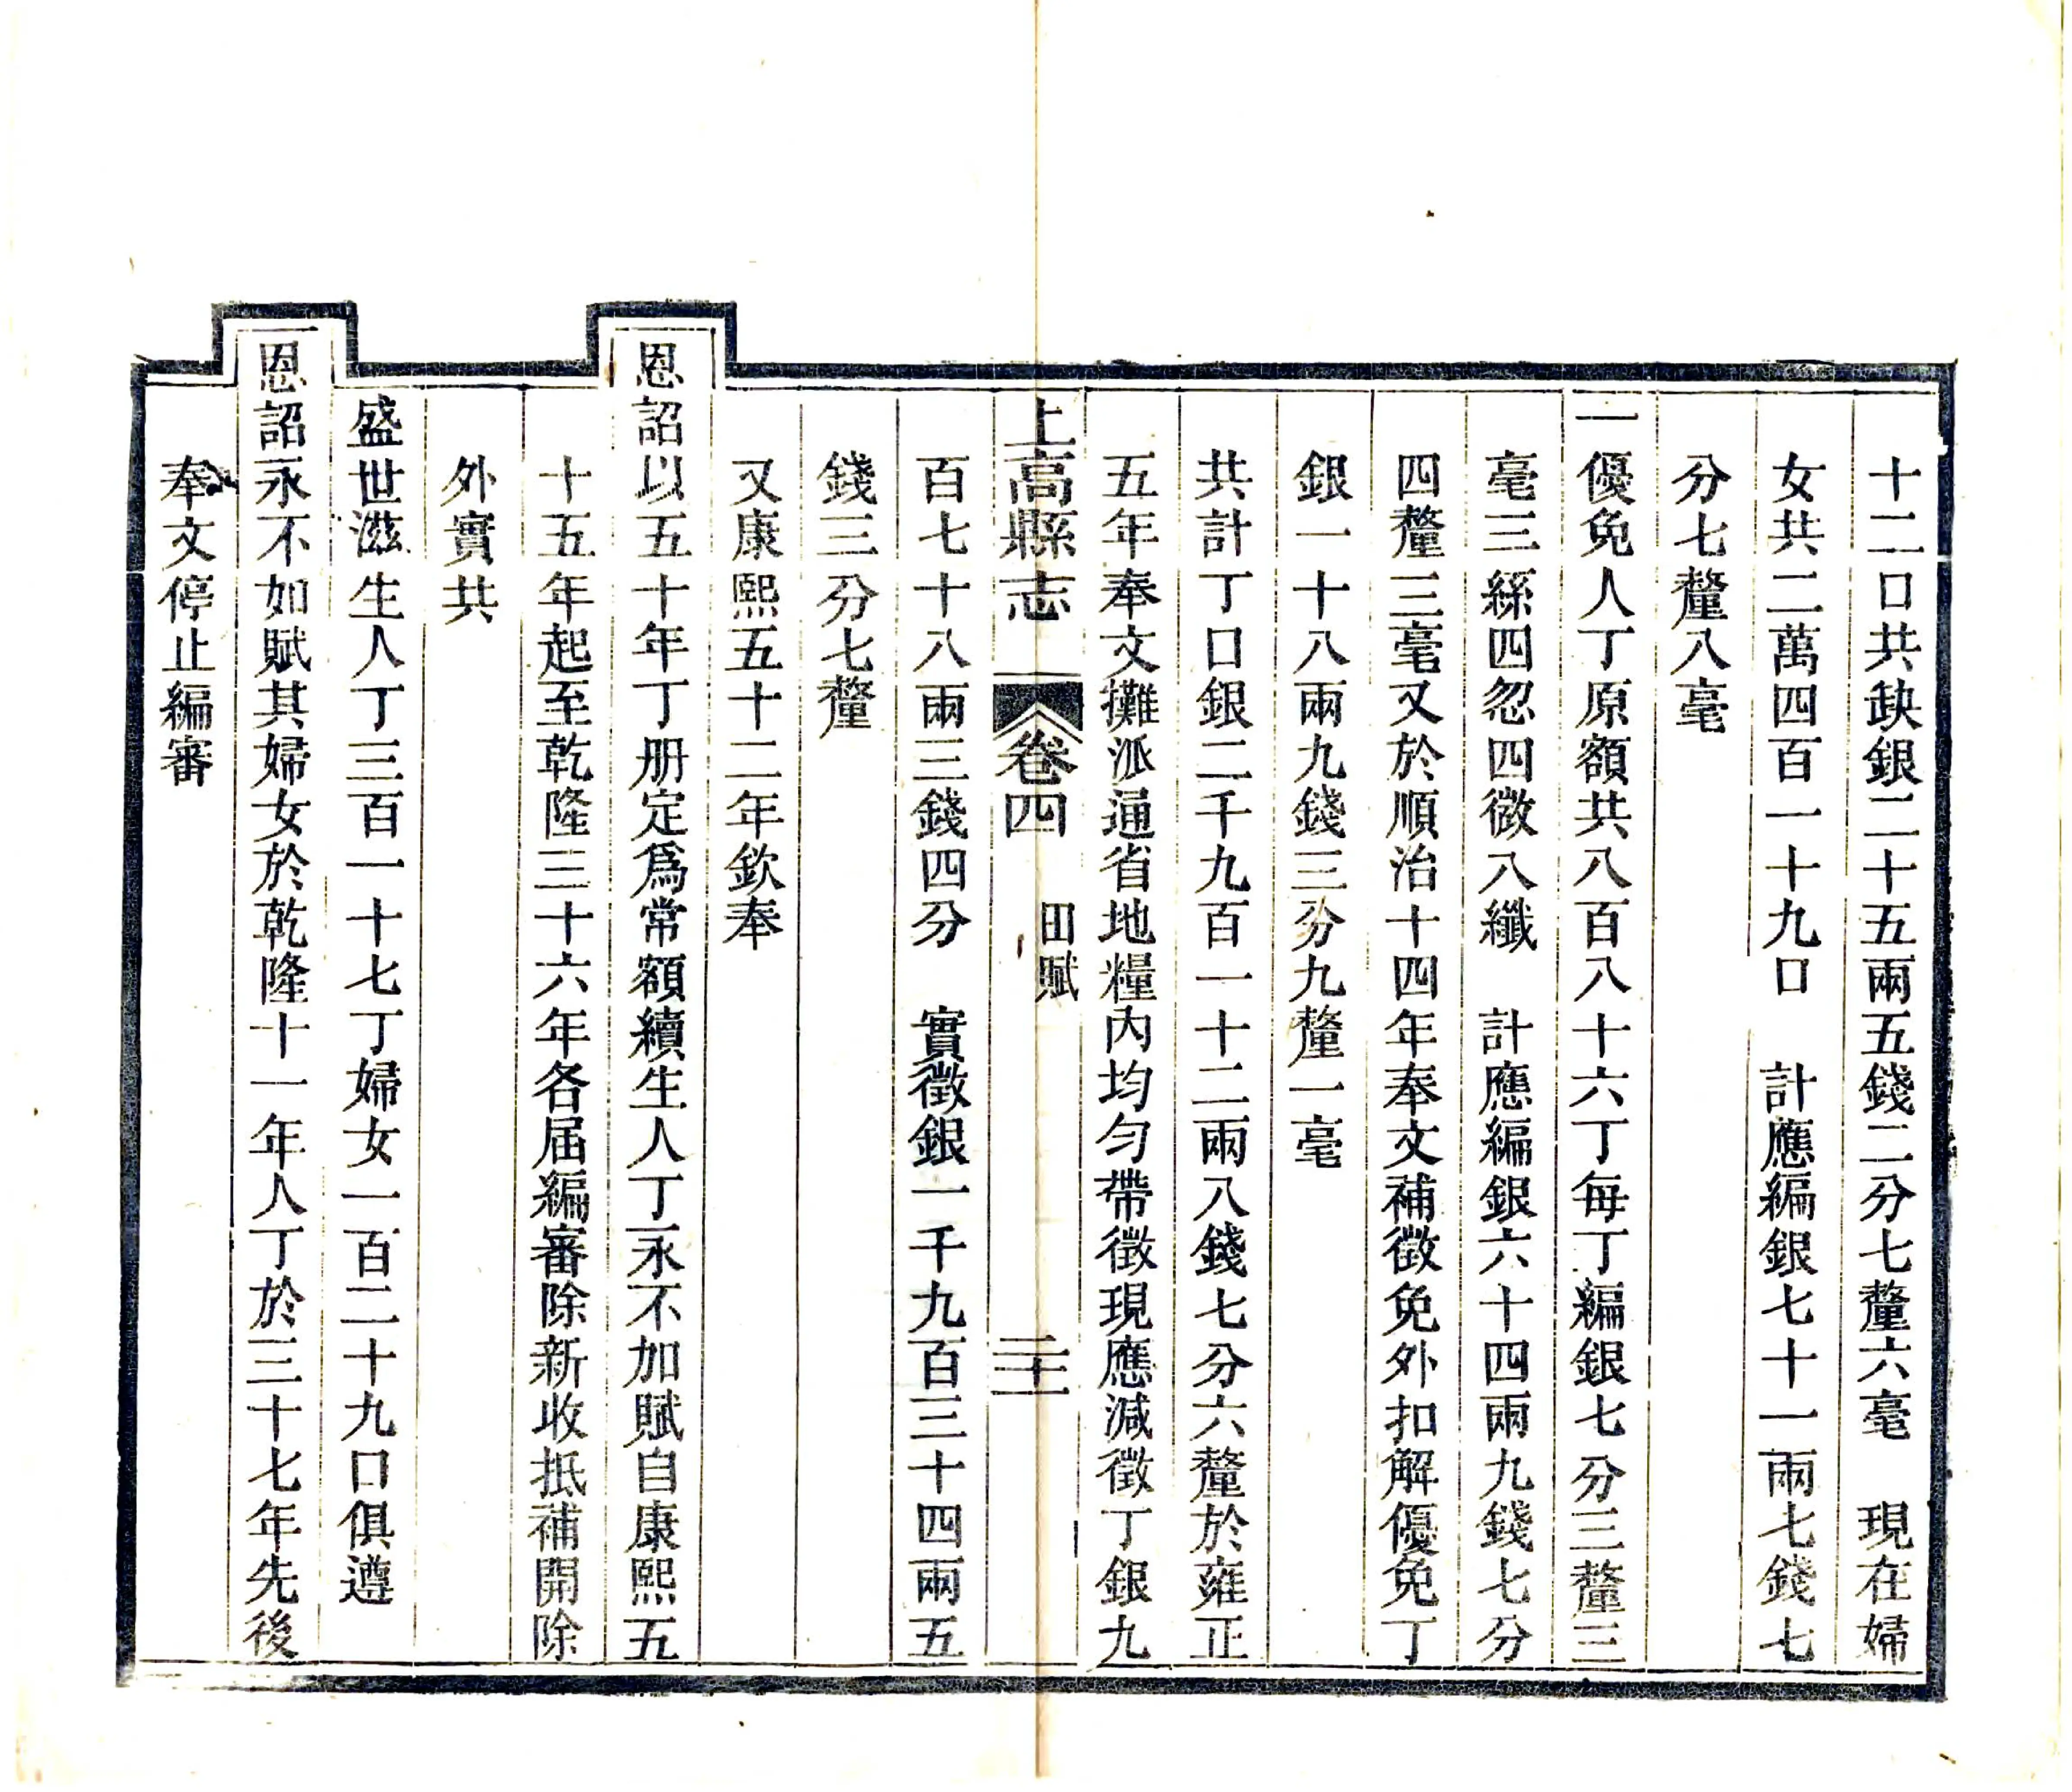 十二口共缺銀二十五兩五錢二分七釐六毫　現在婦
女共二萬四百一十九口　計應編銀七十一兩七錢七
分七釐八毫
一優免人丁原額共八百八十六丁每丁編銀七分三釐三
毫三絲四忽四微八纖　計應編銀六十四兩九錢七分
四釐三毫又於順治十四年奉文補徵免外扣解優免丁
銀一十八兩九錢三分九釐一毫
共計丁口銀二千九百一十二兩八錢七分六釐於雍正
五年奉文攤派通省地糧内均勻帶徵現應減徵丁銀九
上高縣志　卷四　田賦　二十二
百七十八兩三錢四分　實徵銀一千九百三十四兩五
錢三分七釐
又康熙五十二年欽奉
恩詔以五十年丁册定爲常額續生人丁永不加賦自康熙五
十五年起至乾隆三十六年各届編審除新收抵補開除
外實共
盛世滋生人丁三百一十七丁婦女一百二十九口俱遵
恩詔永不如賦其婦女於乾隆十一年人丁於三十七年先後
奉文停止編審